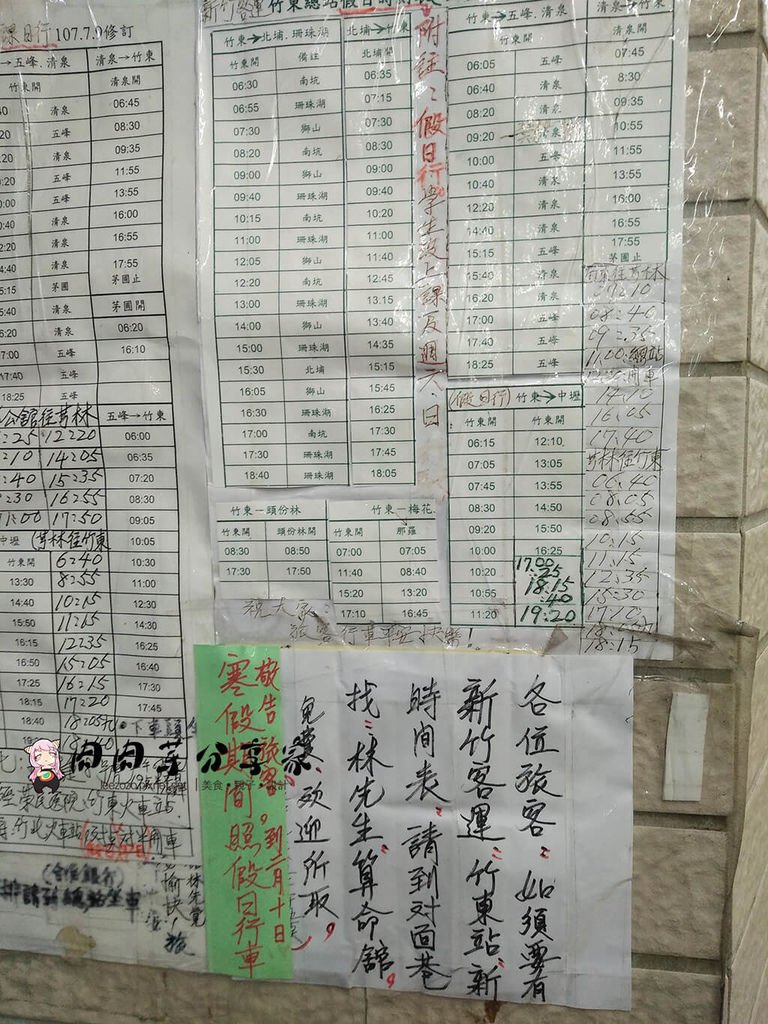 課日行 107.7.9修訂
→五峰.清泉 清泉→竹東
竹東開 清泉開
清泉 06:45
五峰 08:30
清泉 09:35
五峰 11:55
清泉 13:55
清泉 16:00
清泉 16:55
清泉 17:55
五峰 茅圃止
清泉 茅圃開
清泉 06:20
17:00 五峰 16:10
17:40 五峰
18:25 五峰
公館往芎林 五峰→竹東
12:20 06:00
14:05 06:35
15:35 07:20
16:55 08:30
17:50 09:05
中壢 芎林往竹東 10:05
竹東開 6:40 10:30
13:30 8:55 11:00
14:40 10:15 12:30
15:50 11:15 14:30
16:15 12:35 15:30
16:50 15:05 16:40
17:25 16:15 17:30
18:15 17:20 17:45
18:40
肉肉芽分享家
新竹客運 竹東總站假日時刻表
竹東→北埔.珊珠湖 北埔→竹東
竹東開 備註 北埔開
06:30 南坑 06:35
06:55 珊珠湖 07:15
07:30 獅山 07:30
08:20 南坑 08:30
09:00 獅山 09:00
09:40 珊珠湖 09:40
10:15 南坑 10:20
11:00 珊珠湖 11:00
12:05 獅山 11:40
12:20 南坑 12:45
13:00 珊珠湖 13:15
14:00 獅山 13:40
15:00 珊珠湖 14:35
15:30 北埔 15:15
16:05 獅山 15:45
16:30 珊珠湖 16:25
17:00 南坑 17:30
17:30 珊珠湖 17:45
18:40 珊珠湖 18:05
附註:假日行學生沒上課及週六.日
竹東→五峰.清泉
竹東開 清泉開
06:05 五峰 07:45
06:40 清泉 8:30
08:20 清泉 09:35
09:20 清泉 10:55
10:00 五峰 11:55
10:40 清泉 13:55
12:20 清泉 16:00
14:40 清泉 16:55
15:15 五峰 17:55
15:40 清泉 茅圃止
16:20 清泉
17:00 五峰
17:40 五峰
18:25 五峰
07:10
08:40
09:35
11:00
14:10
16:05
17:40
芎林往竹東
06:40
08:05
08:55
10:15
11:15
12:35
15:30
17:10
18:15
(假日行) 竹東→中壢
竹東開 竹東開
06:15 12:10
07:05 13:05
07:45 13:55
08:30 14:50
09:20 15:50
10:00 16:25
10:20 17:00
:25
10:55 18:15
:40
11:20 19:20
竹東－頭份林 竹東－梅花
竹東開 頭份林開 竹東開 那羅
08:30 08:50 07:00 07:05
17:30 17:50 11:40 08:40
15:20 13:20
17:10 16:45
祝大家:
旅客行車平安快樂!
敬告旅客。到二月十日
寒假期間照假日行車
各位旅客:如須要有
新竹客運:竹東站:新
時間表:請到对面巷
找:林先生:算命館,
免費:欢迎所取,
經榮民醫院、竹東火車站